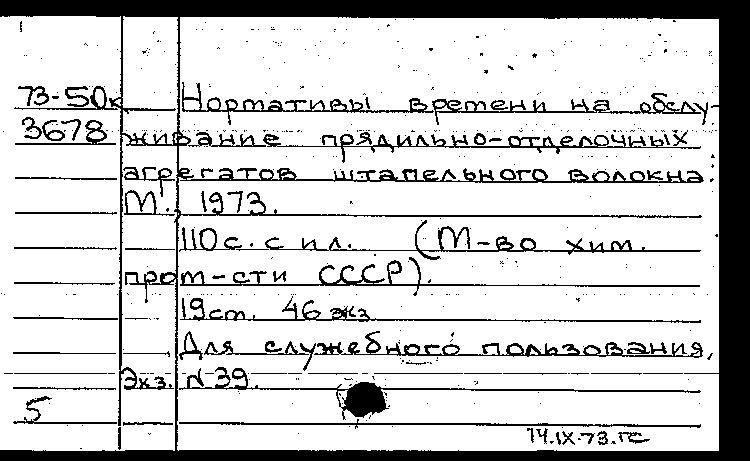 73-50к Нормативы времени на обслу-
3678 живание прядильно-отделочных
агрегатов штапельного волокна.
М., 1973.
110 с. с ил. (М-во хим.
пром-сти СССР).
19 см. 46 экз
Для служебного пользования,
Экз. N 39.
5
14.IX-73. ГС